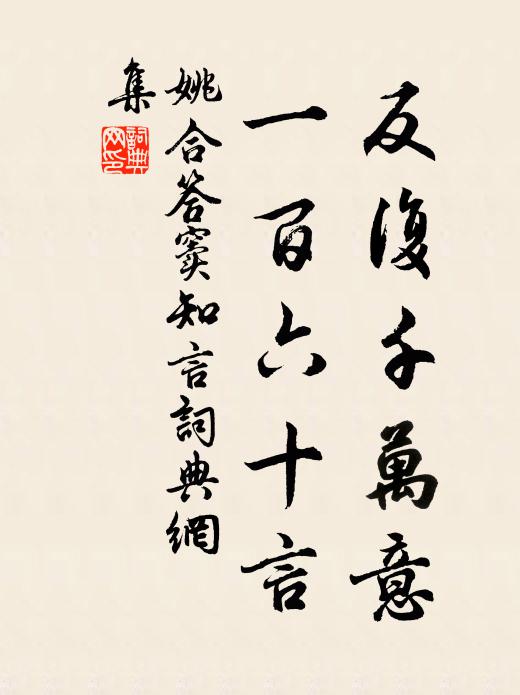 反復千萬意
一百六十言
姚合答竇知言詞典網
集
詞典網印